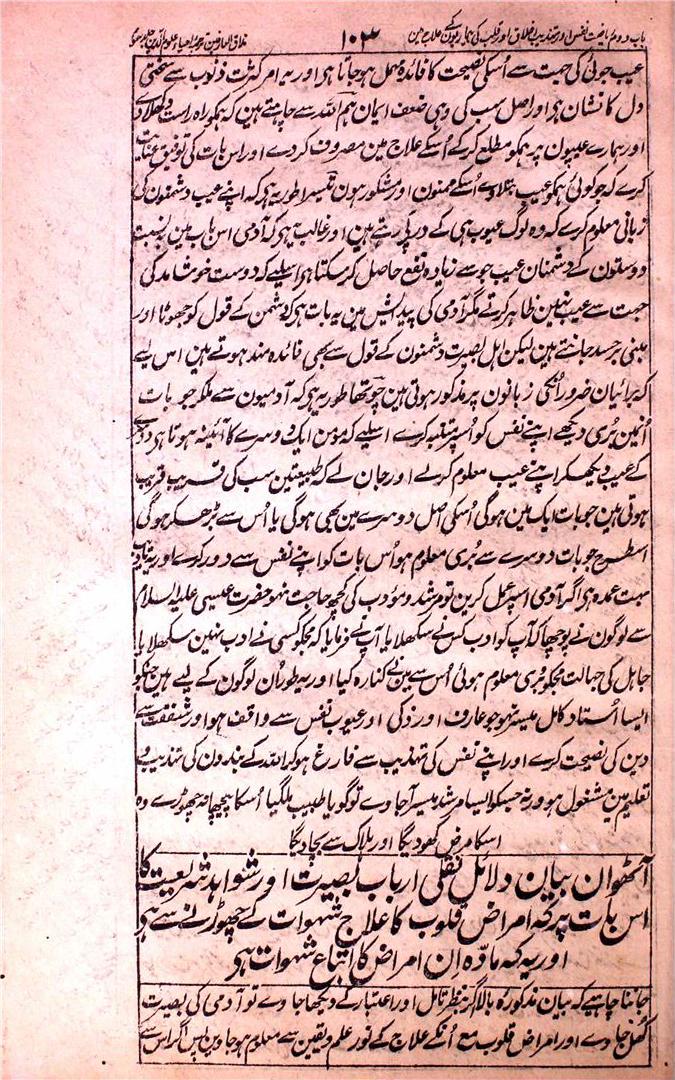 باب دوم ریاضت نفس اور تہذیب اخلاق اور قلب کی بیماریون کے علاج مین
۱۰۳
مذاق العارفین ترجمہ احیاء علوم الدین جلد سوم
عیب جوئی کی جہت سے اُسکی نصیحت کا فائدہ مہمل ہو جاتا ہی اور یہ امر کثرت ذنوب سے سختی
دل کا نشان ہی اور اصل سب کی وہی ضعف ایمان ہم اللہ سے چاہتے ہین کہ ہمکو راہ راست دکھلاوے
اور ہمارے عیبون پر ہمکو مطلع کر کے اُسکے علاج مین مصروف کر دے اور اس بات کی توفیق عنایت
کرے کہ جو کوئی ہمکو عیب بتلاوے اُسکے ممنون اور مشکور ہون تیسرا طور یہ ہی کہ اپنے عیب دشمنون کی
زبانی معلوم کرے کہ وہ لوگ عیوب ہی کے درپے رہتے ہین اور غالب یہی کہ آدمی اس باب مین بنسبت
دوستون کے دشمنان عیب جو سے زیادہ نفع حاصل کر سکتا ہی اسلیے کہ دوست خوشامد کی
جہت سے عیب نہین ظاہر کرتے مگر آدمی کی پیدایش مین یہ بات ہی کہ دشمن کے قول کو جھوٹا اور
مبنی بر حسد جانتے ہین لیکن اہل بصیرت دشمنون کے قول سے بھی فائدہ مند ہوتے ہین اس لیے
کہ برائیان ضرور اُنکی زبانون پر مذکور ہوتی ہین چوتھا طور یہ ہی کہ آدمیون سے ملکر جو بات
اُنمین بُری دیکھے اپنے نفس کو اُسپر متنبہ کرے اسلیے کہ مؤمن ایک دوسرے کا آئینہ ہوتا ہی دوسرے
کے عیب دیکھکر اپنے عیب معلوم کر لے اور جان لے کہ طبیعتین سب کی قریب قریب
ہوتی ہین جو بات ایک مین ہوگی اُسکی اصل دوسرے مین بھی ہوگی یا اُس سے بڑھکر ہوگی
اسطرح جو بات دوسرے سے بُری معلوم ہو اُس بات کو اپنے نفس سے دور کرے اور یہ تادیب
بہت عمدہ ہی اگر آدمی اسپر عمل کرین تو مرشد و مؤدب کی کچھ حاجت نہو حضرت عیسی علیہ السلام
سے لوگون نے پوچھا کہ آپ کو ادب کس نے سکھلایا آپ نے فرمایا کہ مجکو کسی نے ادب نہین سکھلایا
جاہل کی جہالت مجکو بُری معلوم ہوئی اُس سے مین نے کنارہ کیا اور یہ طور اُن لوگون کے لیے ہین جنکو
ایسا اُستاد کامل میسر نہو جو عارف اور ذکی اور عیوب نفس سے واقف ہو اور شفقت سے
دین کی نصیحت کرے اور اپنے نفس کی تہذیب سے فارغ ہو کر اللہ کے بندون کی تہذیب و
تعلیم مین مشغول ہو ورنہ جسکو ایسا مرشد میسر آجاوے تو گویا طبیب ملگیا اُسکا پیچھا نہ چھوڑے وہ
اسکا مرض کھو دیگا اور ہلاک سے بچا دیگا
آٹھوان بیان دلائل نقلی ارباب بصیرت اور شواہد شریعت کا
اس بات پر کہ امراض قلوب کا علاج شہوات کے چھوڑنے سے ہی
اور یہ کہ مادّہ اِن امراض کا اتباع شہوات ہی
جاننا چاہیے کہ بیان مذکورہ بالا اگر بنظر تامل اور اعتبار کے دیکھا جاوے تو آدمی کی بصیرت
کُھل جاوے اور امراض قلوب مع اُنکے علاج کے نور علم و یقین سے معلوم ہو جاوین پس اگر اس سے